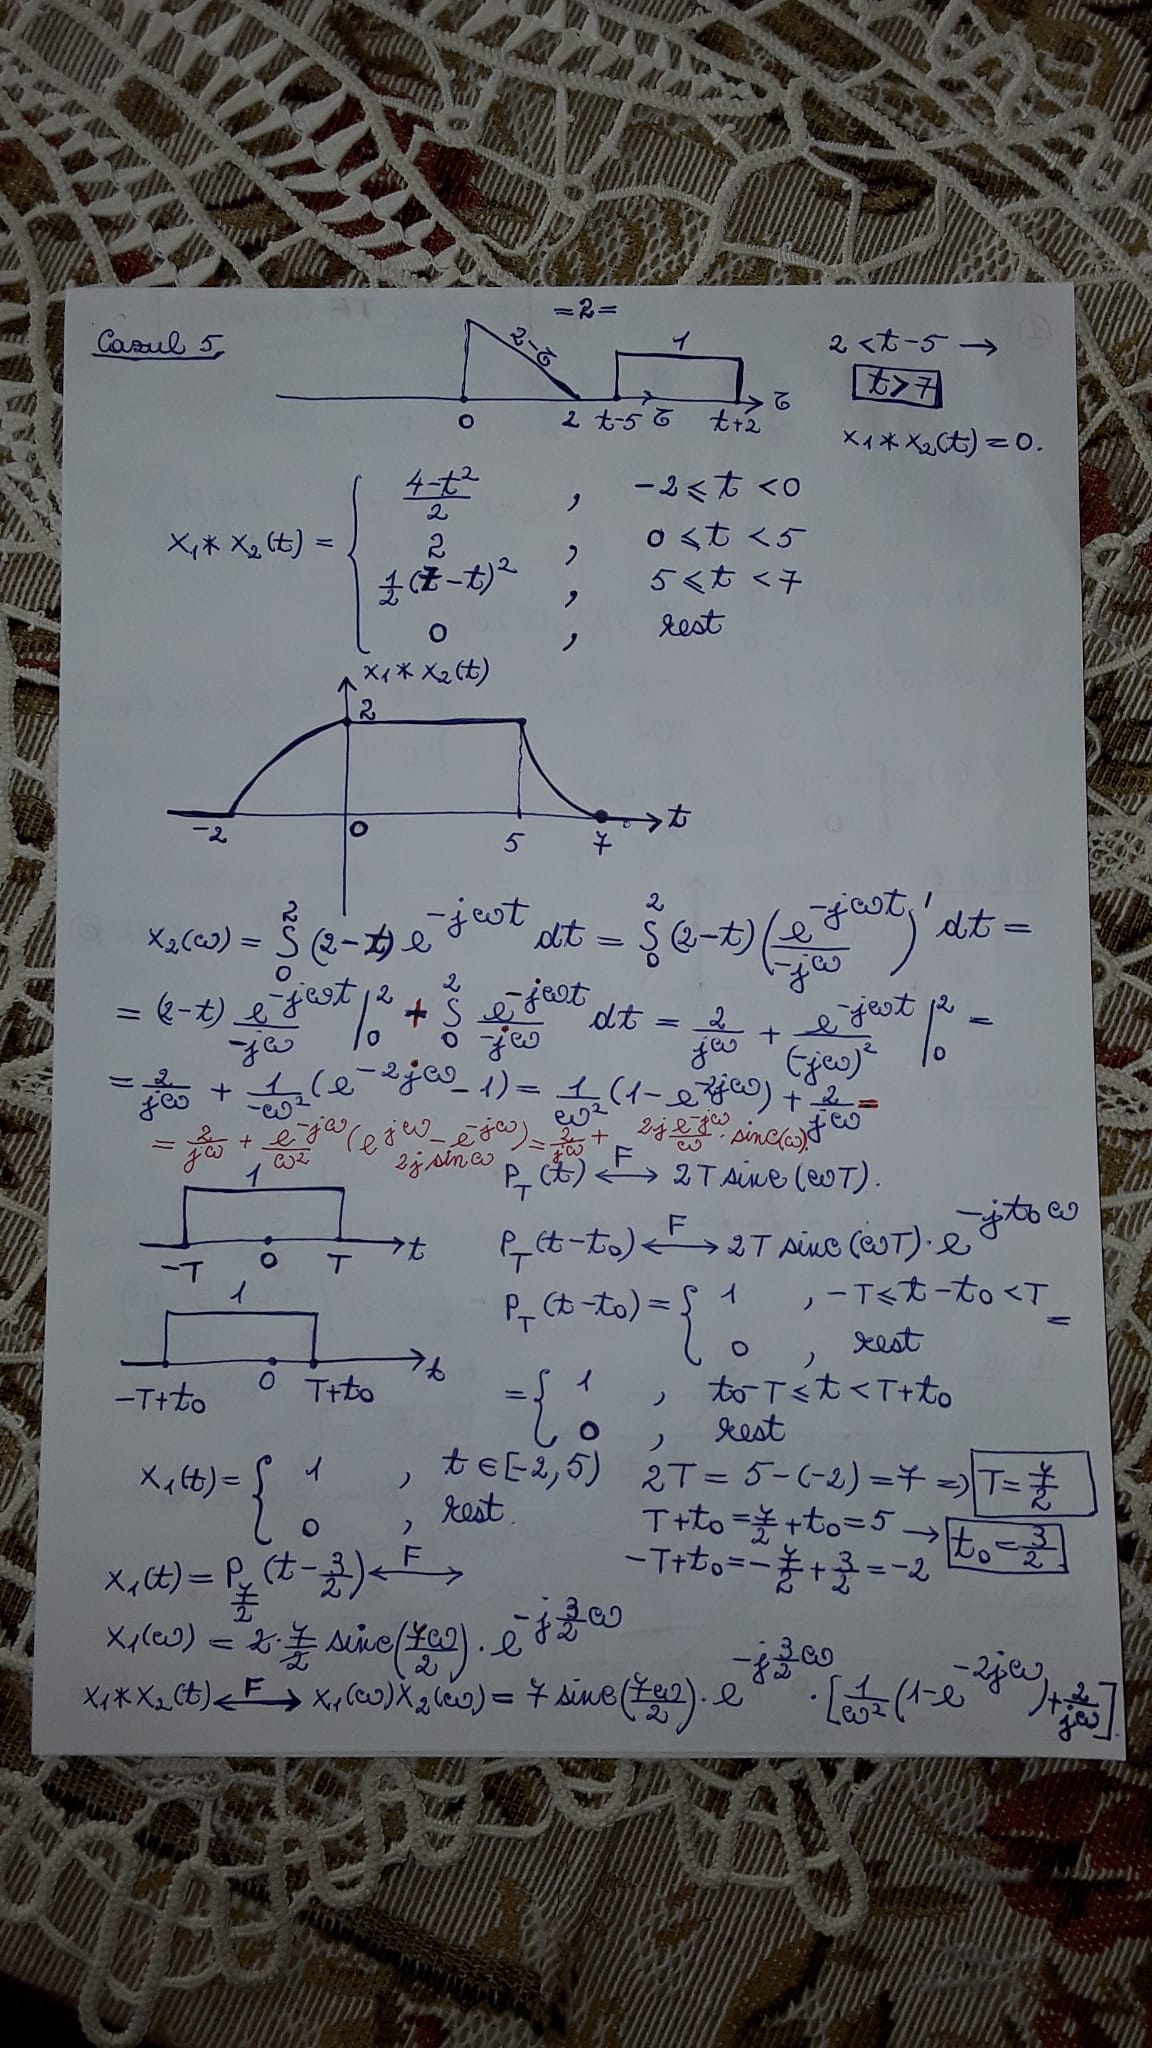 =2=
Cazul 5.
2-τ
1
0 2 t-5 τ t+2 τ
2 < t-5 →
t > 7
x₁*x₂(t) = 0.
x₁*x₂(t) = { (4-t²)/2 , -2 ≤ t < 0
2 , 0 ≤ t < 5
1/2 (7-t)² , 5 ≤ t < 7
0 , rest
x₁*x₂(t)
2
-2 0 5 7 t
X₂(ω) = ∫₀² (2-t) e^(-jωt) dt = ∫₀² (2-t) (e^(-jωt)/(-jω))' dt =
= (2-t) e^(-jωt)/(-jω) |₀² + ∫₀² e^(-jωt)/(-jω) dt = 2/(jω) + e^(-jωt)/(-jω)² |₀² =
= 2/(jω) + 1/(-ω²) (e^(-2jω) - 1) = 1/ω² (1-e^(-2jω)) + 2/(jω) =
= 2/(jω) + e^(-jω)/ω² (e^(jω) - e^(-jω)) = 2/(jω) + 2j e^(-jω)/ω · sinc(ω).
2j sinω
1
-T 0 T t
P_T(t) ⟷F 2T sinc(ωT).
P_T(t-t₀) ⟷F 2T sinc(ωT) · e^(-jt₀ω)
1
-T+t₀ 0 T+t₀ t
P_T(t-t₀) = { 1 , -T ≤ t-t₀ < T =
0 , rest
= { 1 , t₀-T ≤ t < T+t₀
0 , rest
x₁(t) = { 1 , t ∈ [-2, 5)
0 , rest.
2T = 5-(-2) = 7 ⇒ T = 7/2
T+t₀ = 7/2 + t₀ = 5 → t₀ = 3/2
-T+t₀ = -7/2 + 3/2 = -2
x₁(t) = P_(7/2) (t - 3/2) ⟷F
X₁(ω) = 2·7/2 sinc(7ω/2) · e^(-j 3/2 ω)
x₁*x₂(t) ⟷F X₁(ω)X₂(ω) = 7 sinc(7ω/2) · e^(-j 3/2 ω) · [1/ω² (1-e^(-2jω)) + 2/(jω)].